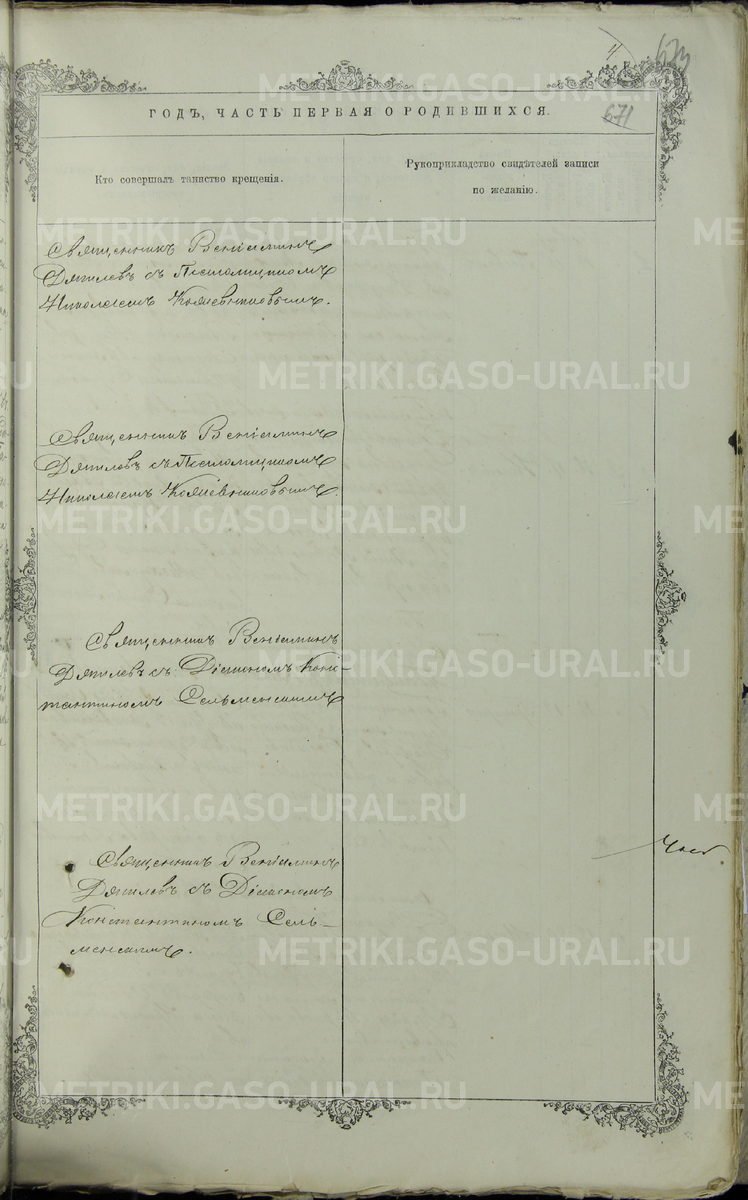 4
673
ГОДЪ, ЧАСТЬ ПЕРВАЯ О РОДИВШИХСЯ.
671
Кто совершалъ таинство крещенія.
Рукоприкладство свидѣтелей записи
по желанію.
Священникъ Веніаминъ
Дягилевъ съ Псаломщикомъ
Николаемъ
Священникъ Веніаминъ
Дягилевъ съ Псаломщикомъ
Николаемъ
Священникъ Веніаминъ
Дягилевъ съ Діакономъ Конс-
тантиномъ Сельменскимъ
Священникъ Веніаминъ
Дягилевъ съ Діакономъ
Константиномъ Сель-
менскимъ.
METRIKI.GASO-URAL.RU